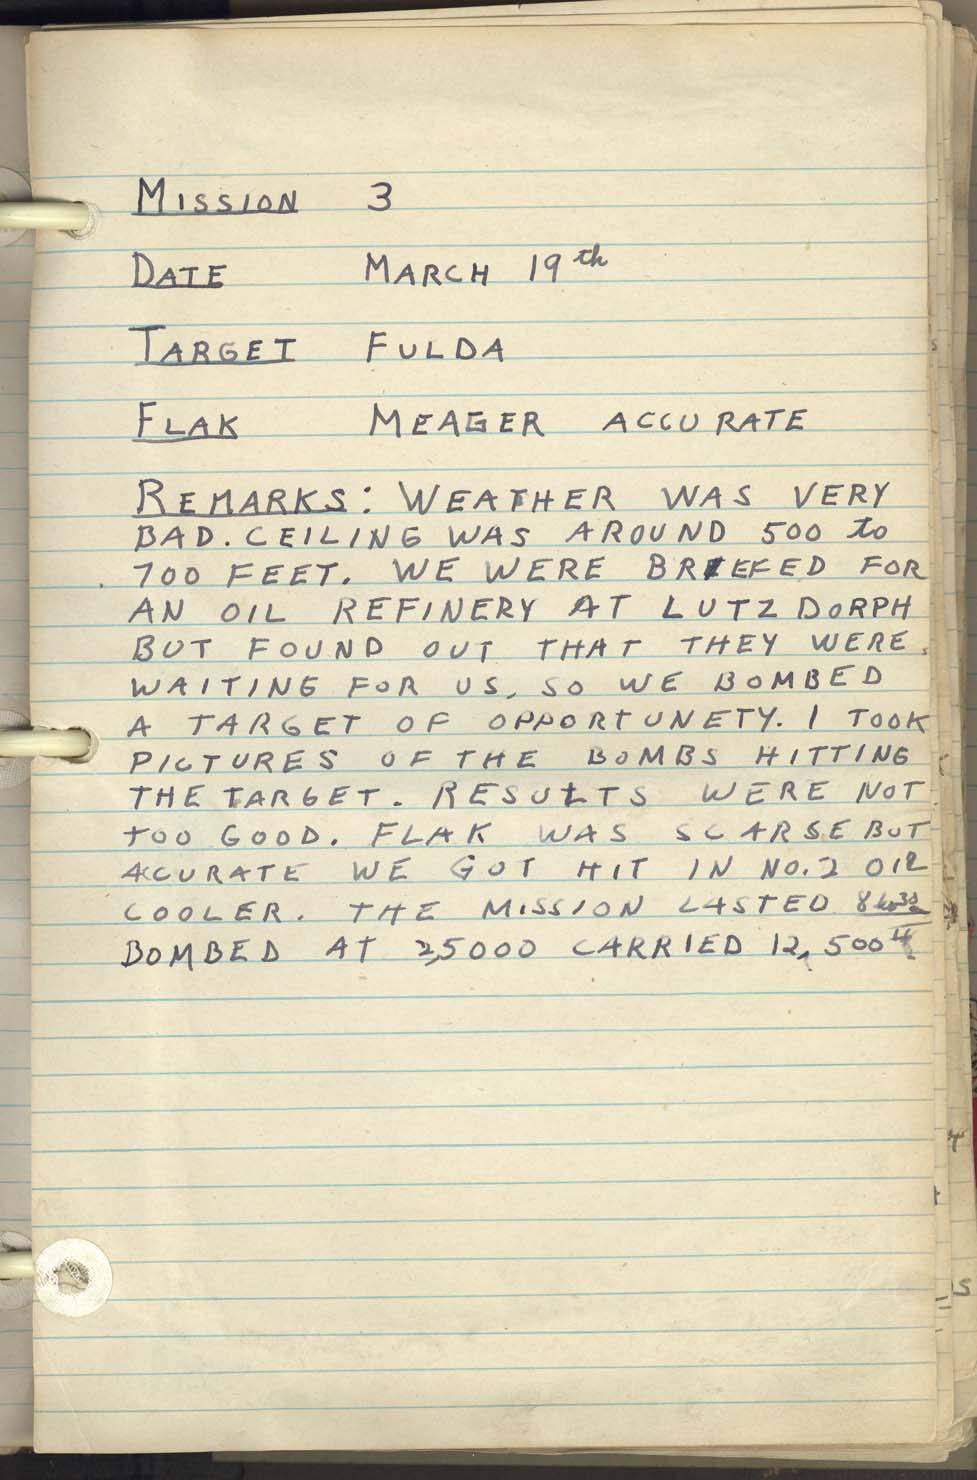 MISSION 3
DATE MARCH 19th
TARGET FULDA
FLAK MEAGER ACCURATE
REMARKS: WEATHER WAS VERY
BAD. CEILING WAS AROUND 500 to
700 FEET. WE WERE BRIEFED FOR
AN OIL REFINERY AT LUTZDORPH
BUT FOUND OUT THAT THEY WERE
WAITING FOR US, SO WE BOMBED
A TARGET OF OPPORTUNETY. I TOOK
PICTURES OF THE BOMBS HITTING
THE TARGET. RESULTS WERE NOT
TOO GOOD. FLAK WAS SCARSE BUT
ACURATE WE GOT HIT IN NO. 2 OIL
COOLER. THE MISSION LASTED 8
BOMBED AT 25000 CARRIED 12,500